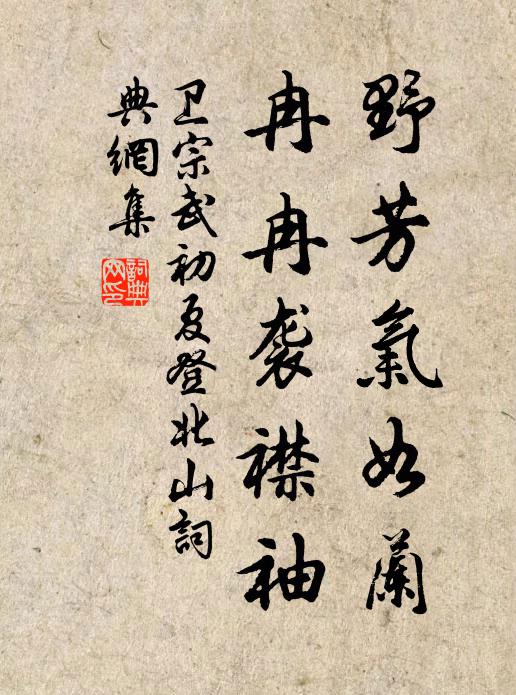 野芳氣如蘭
冉冉袭襟袖
卫宗武初夏登北山詞
典網集
詞典
网印